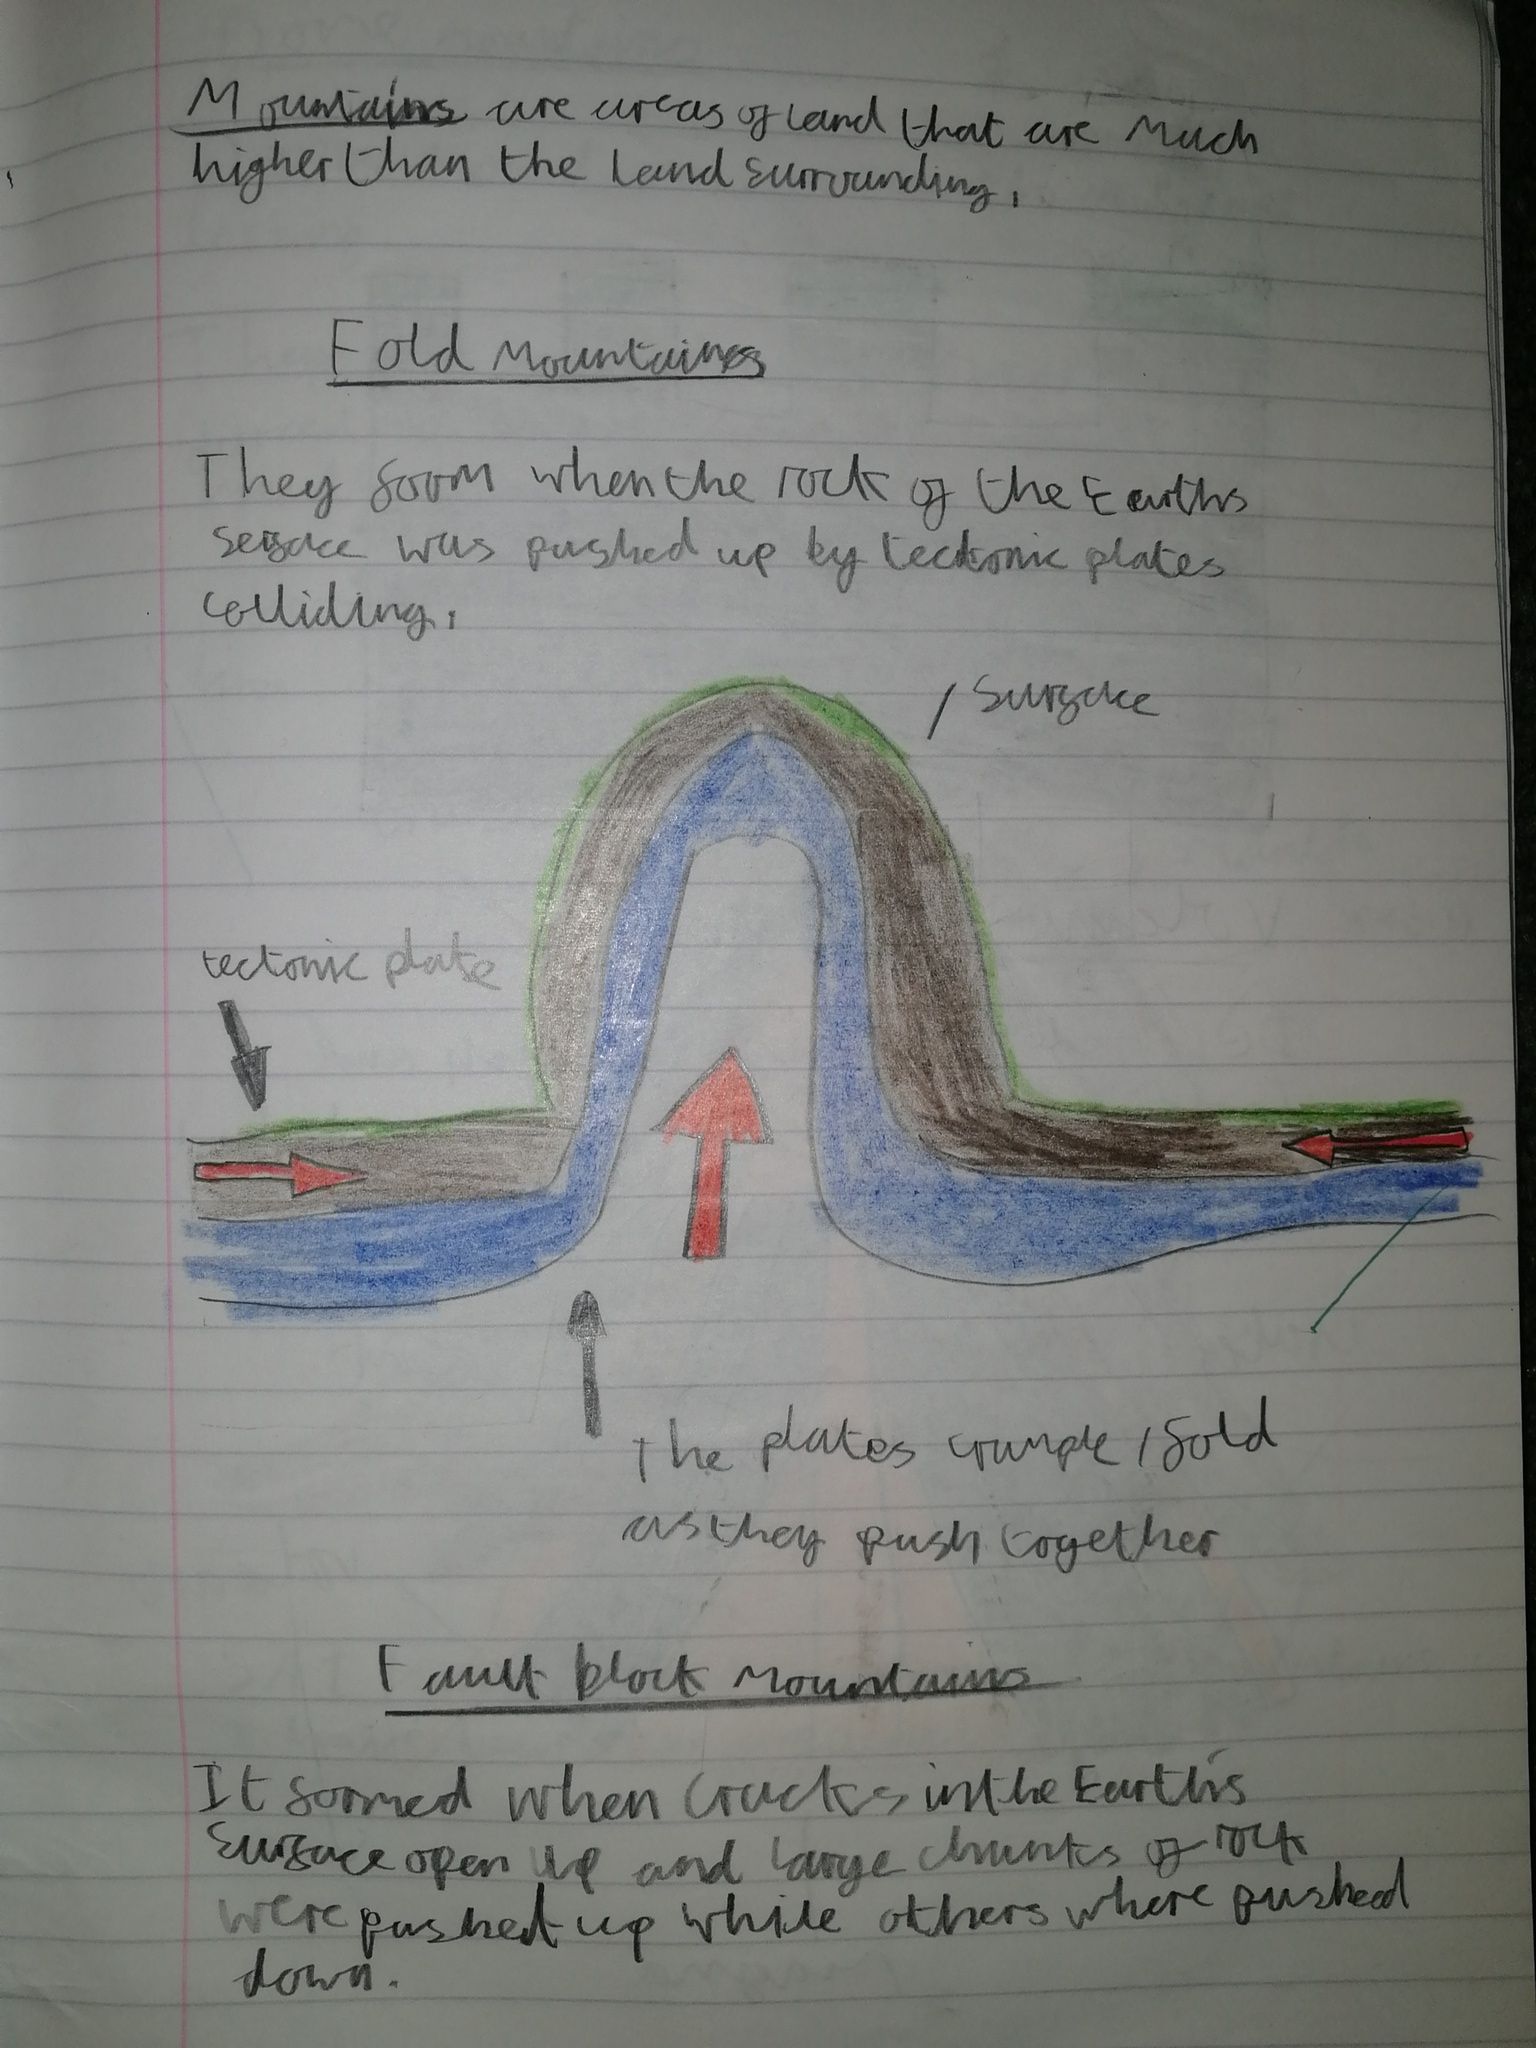 Mountains are areas of land that are Much
higher than the Land surrounding.
Fold Mountains
They form when the rock of the Earths
serface was pushed up by tectonic plates
colliding.
/ Surface
tectonic plate
The plates crumple / fold
as they push together
Fault block Mountains
It formed when cracks in the Earth's
surface open up and large chunks of rock
were pushed up while others where pushed
down.